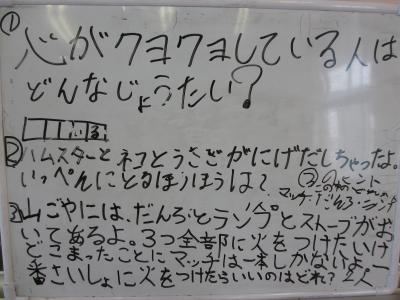 ① 心がクヨクヨしている人は
どんなじょうたい?
いる
② ハムスターとネコとうさぎがにげだしちゃったよ。
いっぺんにとるほうほうは?
③のヒント
マッチ・だんろ・ランプ
③ 山ごやには、だんろとランプとストーブがお
いてあるよ。3つ全部に火をつけたいけ
どこまったことにマッチは一本しかないよ。一
番さいしょに火をつけたらいいのはどれ?